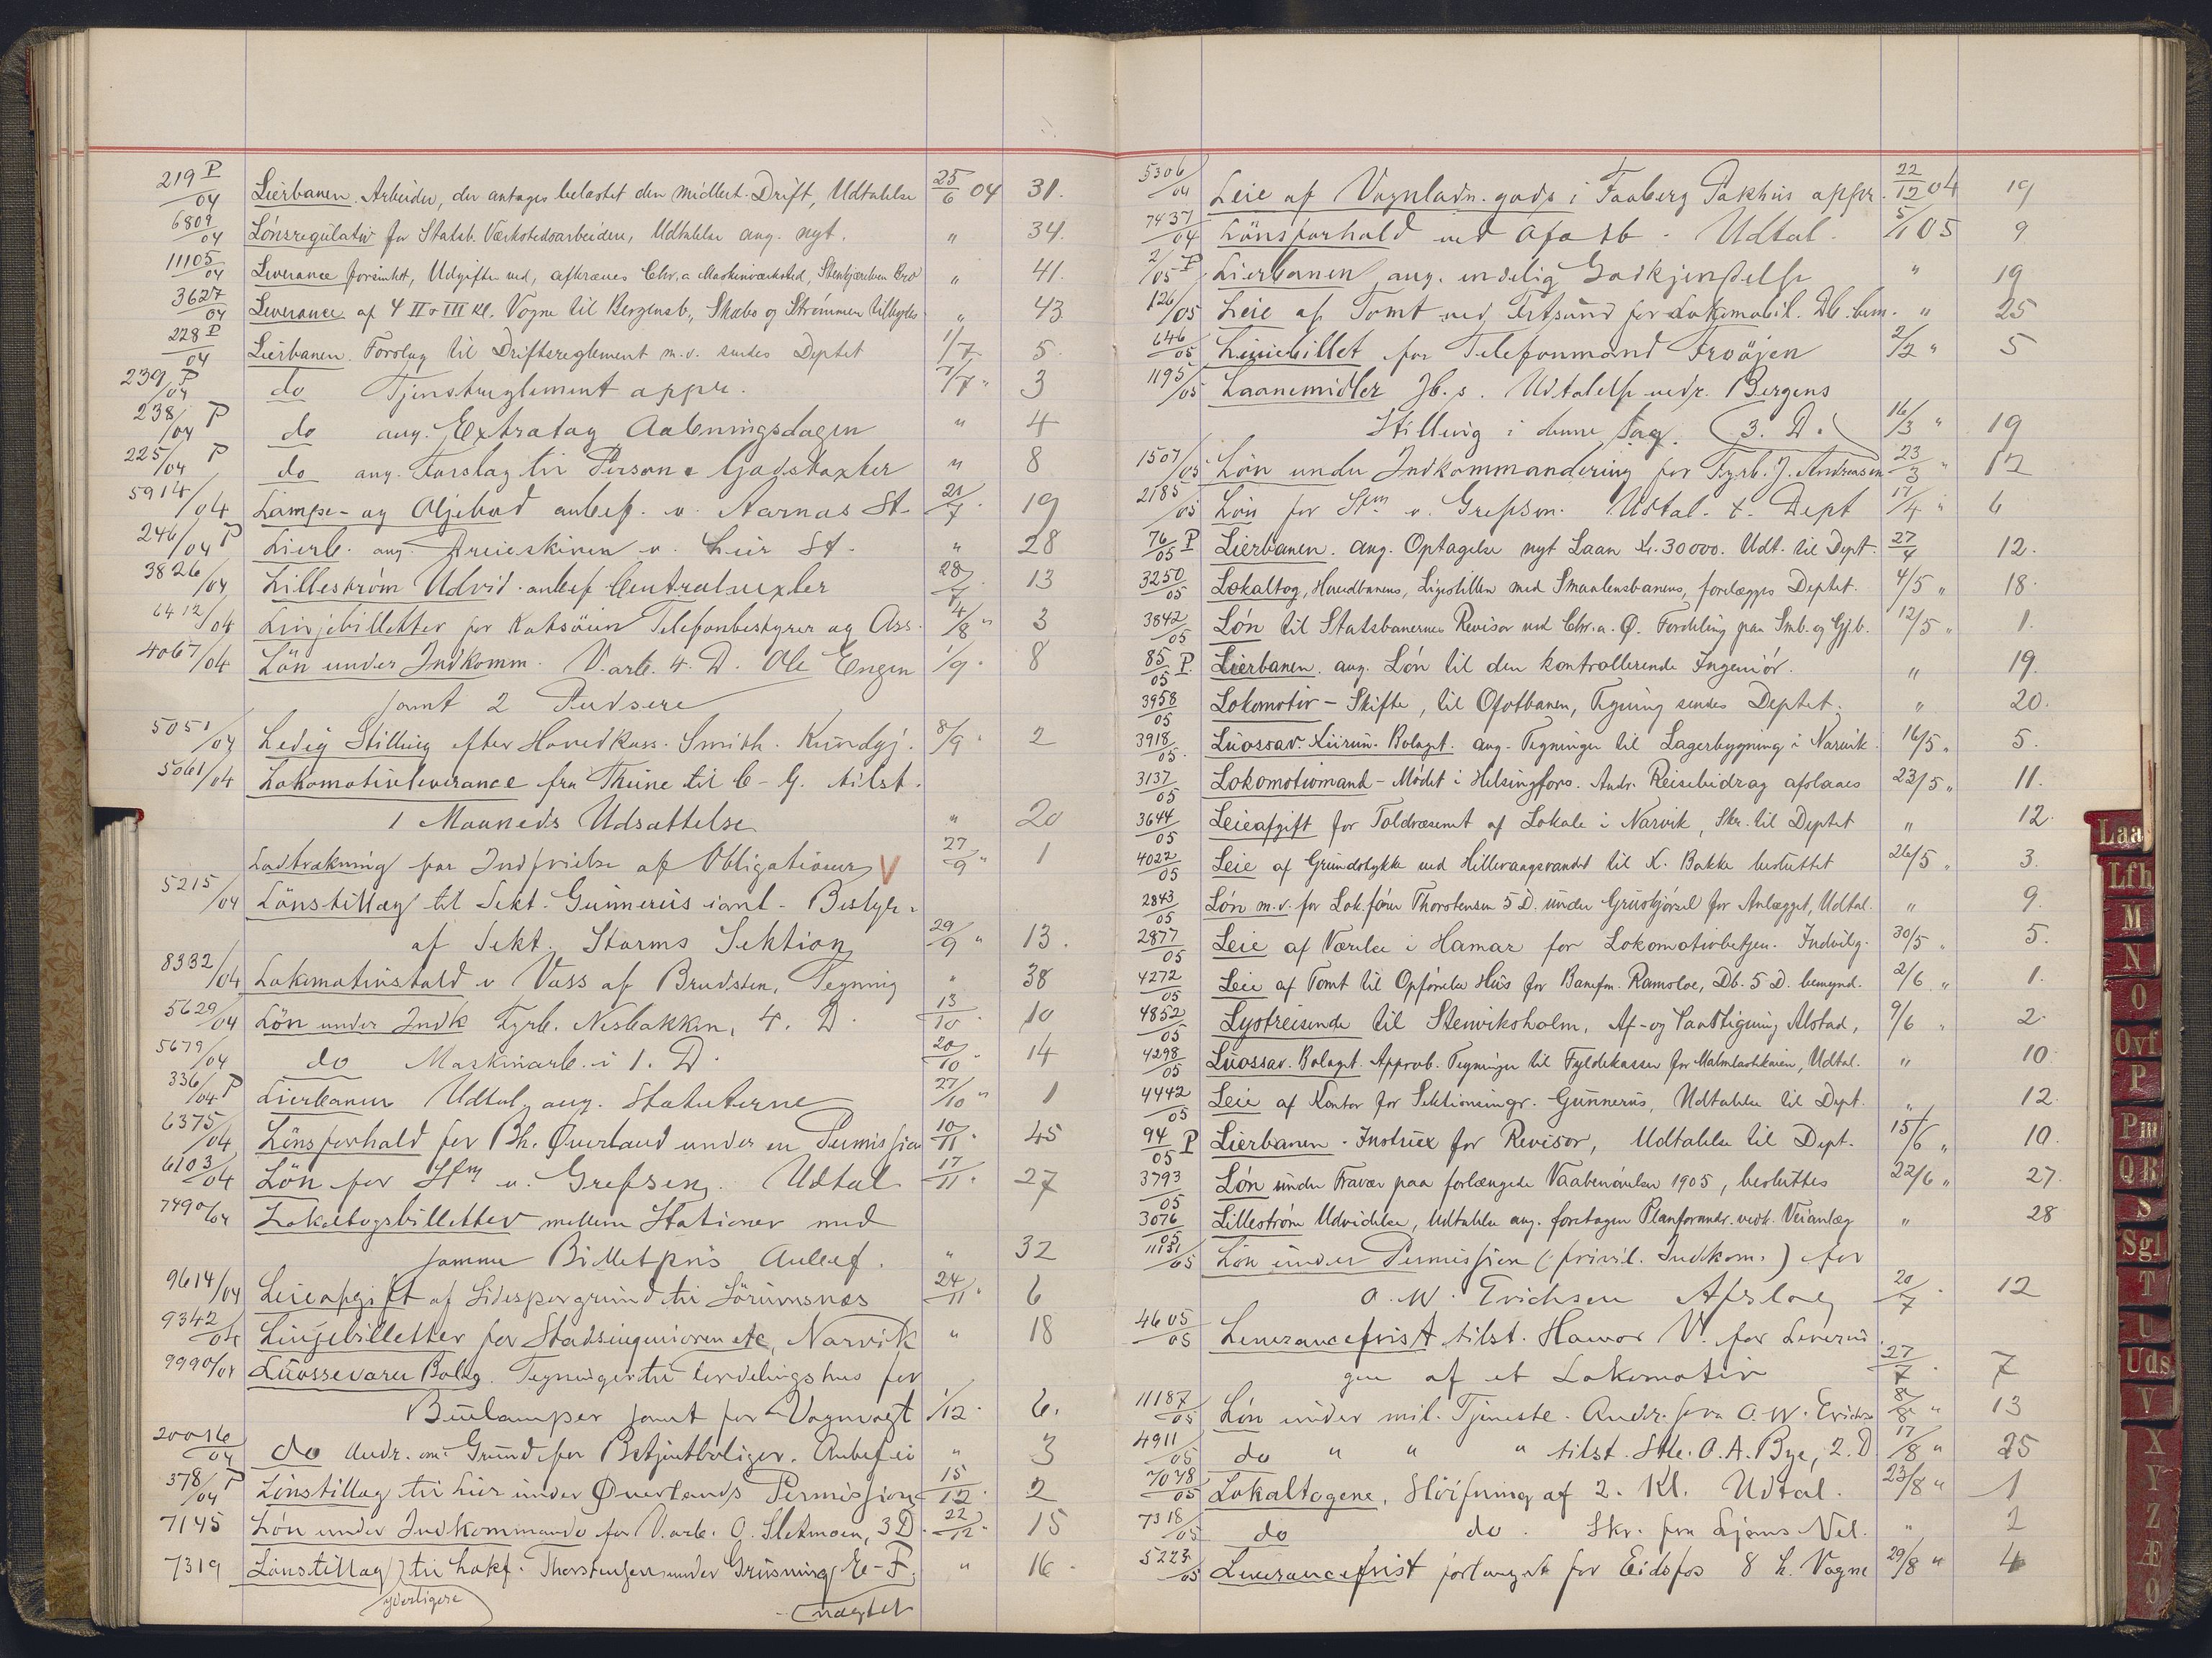 219 P/04 Lierbanen. Arbeider, der antages belastet den midlert. Drift, Udtalelse 25/6 04 31.
6809/04 Lønsregulativ for Statsb. Værkstedsarbeidere, Udtalelse ang. nyt. " 34.
11105/04 Leverance forsinket, Udgifter ved, afkræves Chr.a Maskinværksted, Stenkjærelven Bro " 41.
3627/04 Leverance af 4 II o III Kl. Vogne til Bergensb., Skabo og Strømmen tilbydes " 43
228 P/04 Lierbanen. Forslag til Driftsreglement m.v. sendes Deptet 1/7 5.
239/04 P do Tjenstreglement appr. 7/7 " 3
238/04 P do ang. Extratog Aabningsdagen " 4
225/04 P do ang. Forslag til Person & Godstaxter " 8
5914/04 Lampe- og Oljebod anbef. v. Aarnæs St. 21/7 " 19
246/04 P Lierb. ang. Dreieskiven v. Lier St. " 28
3826/04 Lillestrøm Udvid. anbef Centralvexler 28/7 13
6412/04 Linjebilletter for Telefonbestyrer og Ass. 4/8 " 3
4067/04 Lön under Indkomm. V.arb. 4. D. Ole Engen 1/9 " 8
samt 2 Pudsere
5051/04 Ledig Stilling efter Hovedkass. Smith. Kundgj. 8/9 " 2
5061/04 Lokomotivleverance fra Thune til C-G. tilst.
1 Maaneds Udsættelse " 20
Lodtrækning for Indfrielse af Obligationer V 27/9 " 1
5215/04 Lönstillæg til Sekt. Gunnerus Bestyr.
af Sekt. Storms Sektion 29/9 " 13.
8332/04 Lokomotivstald v Voss af Brudsten, Tegning " 38
5629/04 Lön under Indk Fyrb. Nesbakken, 4. D. 13/10 " 10
5679/04 do Maskinarb. i 1. D. 20/10 " 14
336/04 P Lierbanen Udtal. ang. Statuterne 27/10 " 1
6375/04 Lönsforhold for Bh. Øverland under en Permission 10/11 " 45
6103/04 Lön for Stm v. Grefsen. Udtal 17/11 " 27
7490/04 Lokaltogsbilletter mellem Stationer med
samme Billetpris Anbef. " 32
9614/04 Leieafgift af Sidesporgrund til Sörumsnæs 24/11 " 6
9342/04 Linjebilletter for Stadsingeniøren etc, Narvik " 18
9990/04 Luossevara Bolag. Tegninger til hus for
Buelamper samt for Vognvægt 1/12 " 6.
20016/04 do Andr. om Grund for Betjentboliger. Anbef ei " 3
378/04 P Lönstillæg til Lier under Øverlands Permission 15/12 " 2
7145 Lön under Indkommando for V.arb. O. Sletmoen, 3 D. 22/12 " 15
7319 Lönstillæg til Lokf. Thorstensen under Grusning E-F. " 16
yderligere nægtet
5306/04 Leie af Vognladn. gods i Faaberg Pakhus appr. 22/12 04 19
7437/04 Lönsforhold ved Ofotb. Udtal. 5/1 05 9
2/05 P Lierbanen, ang. endelig Godkjendelse " 19
126/05 Leie af Tomt ved Fetsund for Lokomobil. Db. bem. " 25
646/05 Liniebillet for Telefonmand Froöjen 2/2 " 5
1195/05 Laanemidler Jb.s. Udtalelse vedr. Bergens
Stilling i denne Sag. (3. D.) 16/3 " 19
1507/05 Lön under Indkommandering for Fyrb. J. Andreasen 23/3 " 12
2185/05 Lön for Stm v. Grefsen. Udtal. t. Dept 17/4 " 6
76/05 P Lierbanen. ang. Optagelse nyt Laan Kr. 30000. Udt. til Dept. 27/4 12.
3250/05 Lokaltog, Hovedbanens, Ligestillen med Smaalensbanens, forelægges Deptet. 4/5 " 18.
3842/05 Løn til Statsbanernes Revisor ved Chr.a. Ø. Fordeling paa Smb. og Gj.b. 12/5 " 1.
85/05 P. Lierbanen. ang. Løn til den kontrollerende Ingeniør. " 19.
3958/05 Lokomotiv - Skifte, til Ofotbanen, Tegning sendes Deptet. " 20.
3918/05 Luossav. Kiirun. Bolaget. ang. Tegninger til Lagerbygning i Narvik. 16/5 " 5.
3137/05 Lokomotivmand - Mødet i Helsingfors. Andr. Reisebidrag afslaaes 23/5 " 11.
3644/05 Leieafgift for Toldvæsenet af Lokale i Narvik, Skr. til Deptet " 12.
4022/05 Leie af Grundstykke ved Hillevaagsvandet til K. Bakke besluttet 26/5 " 3.
2843/05 Løn m.v. for Lok.fører Thorstensen 5 D. under Gruskjørsel for Anlægget, Udtal. " 9.
2877/05 Leie af Værelse i Hamar for Lokomotivbetjen. Indvilg. 30/5 " 5.
4272/05 Leie af Tomt til Opførelse Hus for Banefm. Ramsloe, Db. 5 D. bemynd. 2/6 " 1.
4852/05 Lystreisende til Stenviksholm, Af- og Paastigning Alstad, 9/6 " 2.
4298/05 Luossav. Bolaget. Approb. Tegninger til Fyldekasser for Malmlastekaien, Udtal. " 10.
4442/05 Leie af Kontor for Sektioningr. Gunnerus, Udtalelse til Dept. " 12.
94/05 P Lierbanen. Instrux for Revisor, Udtalelse til Dept. 15/6 " 10.
3793/05 Løn under Fravær paa forlængede Vaabenøvelser 1905, besluttes 22/6 " 27.
3076/05 Lillestrøm Udvidelse, Udtalelse ang. foretagen Planforandr. vedk. Veianlæg " 28
11151/05 Lön under Permission (privil. Indkom.) for
O. W. Erichsen Afslag 20/7 " 12
4605/05 Leverancefrist tilst. Hamar V. for Leverin
gen af et Lokomotiv 27/7 " 7
11187/05 Lön under mil. Tjeneste. Andr. fra O. W. Erichs 8/8 " 13
4911/05 do " " " tilst. Stb. O. A. Bye, 2. D. 17/8 " 25
7078/05 Lokaltogene, Slöifning af 2. Kl. Udtal. 23/8 " 1
7318/05 do do. Skr. fra Ljans Vel. " 2
5223/05 Leverancefrist forlænget for Eidsfos 8 L. Vogne 29/8 " 4
Laa
Lfh
M
N
O
Ovf
P
Pm
QR
S
Sgl
T
U
Uds
V
X
Y
Z
Æ
Ø